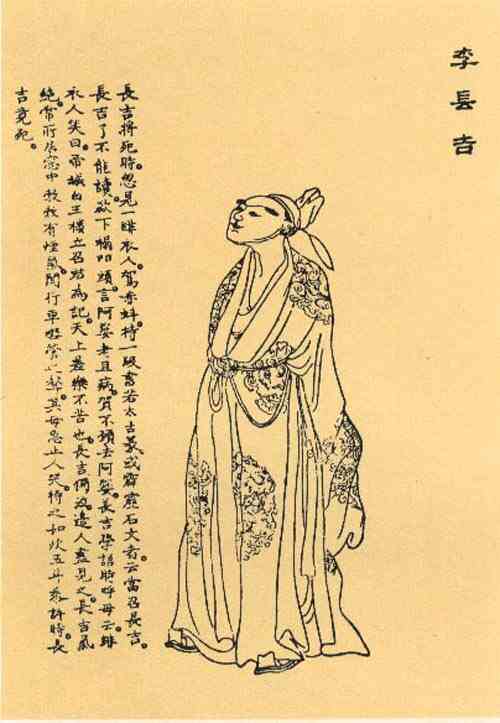 李長吉
長吉將死時。忽見一緋衣人。駕赤虬。持一版書若太古篆或霹靂石文者。云當召長吉。
長吉了不能讀。欻下榻叩頭。言阿㜷老且病。賀不願去阿㜷。長吉學語時呼母云。緋
衣人笑曰。帝城白玉樓立召君為記。天上差樂不苦也。長吉獨泣。邊人盡見之。長吉氣
絕。常所居窗中勃勃有煙氣。聞行車嘒管之聲。其母急止人哭。待之如炊五斗黍許時。長
吉竟死。